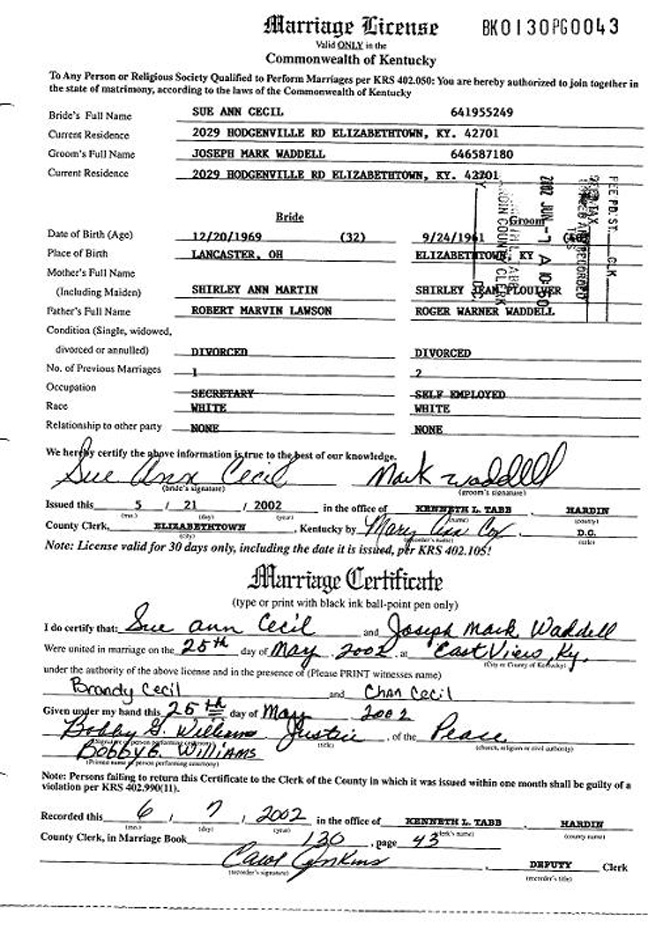 Marriage License
BK0130PG0043
Valid ONLY in the
Commonwealth of Kentucky
To Any Person or Religious Society Qualified to Perform Marriages per KRS 402.050: You are hereby authorized to join together in
the state of matrimony, according to the laws of the Commonwealth of Kentucky
Bride's Full Name SUE ANN CECIL 641955249
Current Residence 2029 HODGENVILLE RD ELIZABETHTOWN, KY. 42701
Groom's Full Name JOSEPH MARK WADDELL 646587180
Current Residence 2029 HODGENVILLE RD ELIZABETHTOWN, KY. 42701
FEE PD. ST. CLK
2002 JUN -7 A
HARDIN COUNTY CLERK
Bride Groom
Date of Birth (Age) 12/20/1969 (32) 9/24/1961
Place of Birth LANCASTER, OH ELIZABETHTOWN, KY
Mother's Full Name
(Including Maiden) SHIRLEY ANN MARTIN SHIRLEY
Father's Full Name ROBERT MARVIN LAWSON ROGER WARNER WADDELL
Condition (Single, widowed,
divorced or annulled) DIVORCED DIVORCED
No. of Previous Marriages 1 2
Occupation SECRETARY SELF EMPLOYED
Race WHITE WHITE
Relationship to other party NONE NONE
We hereby certify the above information is true to the best of our knowledge.
Sue Ann Cecil Mark Waddell
(bride's signature) (groom's signature)
Issued this 5 / 21 / 2002 in the office of KENNETH L. TABB , HARDIN
(mo.) (day) (year) (name) (county)
County Clerk, ELIZABETHTOWN , Kentucky by Mary Ann Cox , D.C.
(city) (recorder's name) (title)
Note: License valid for 30 days only, including the date it is issued, per KRS 402.105!
Marriage Certificate
(type or print with black ink ball-point pen only)
I do certify that: Sue Ann Cecil and Joseph Mark Waddell
Were united in marriage on the 25th day of May, 2002 at East View, Ky.
(City or County of Kentucky)
under the authority of the above license and in the presence of (Please PRINT witnesses name)
Brandy Cecil and Chan Cecil
Given under my hand this 25th day of May 2002
Bobby G. Williams Justice , of the Peace
(Signature of person performing ceremony) (title) (church, religion or civil authority)
Bobby G. Williams
(Printed name of person performing ceremony)
Note: Persons failing to return this Certificate to the Clerk of the County in which it was issued within one month shall be guilty of a
violation per KRS 402.990(11).
Recorded this 6 / 7 / 2002 in the office of KENNETH L. TABB , HARDIN
(mo.) (day) (year) (clerk's name) (county name)
County Clerk, in Marriage Book 130 , page 43
Carol Jenkins , DEPUTY Clerk
(recorder's signature) (recorder's title)